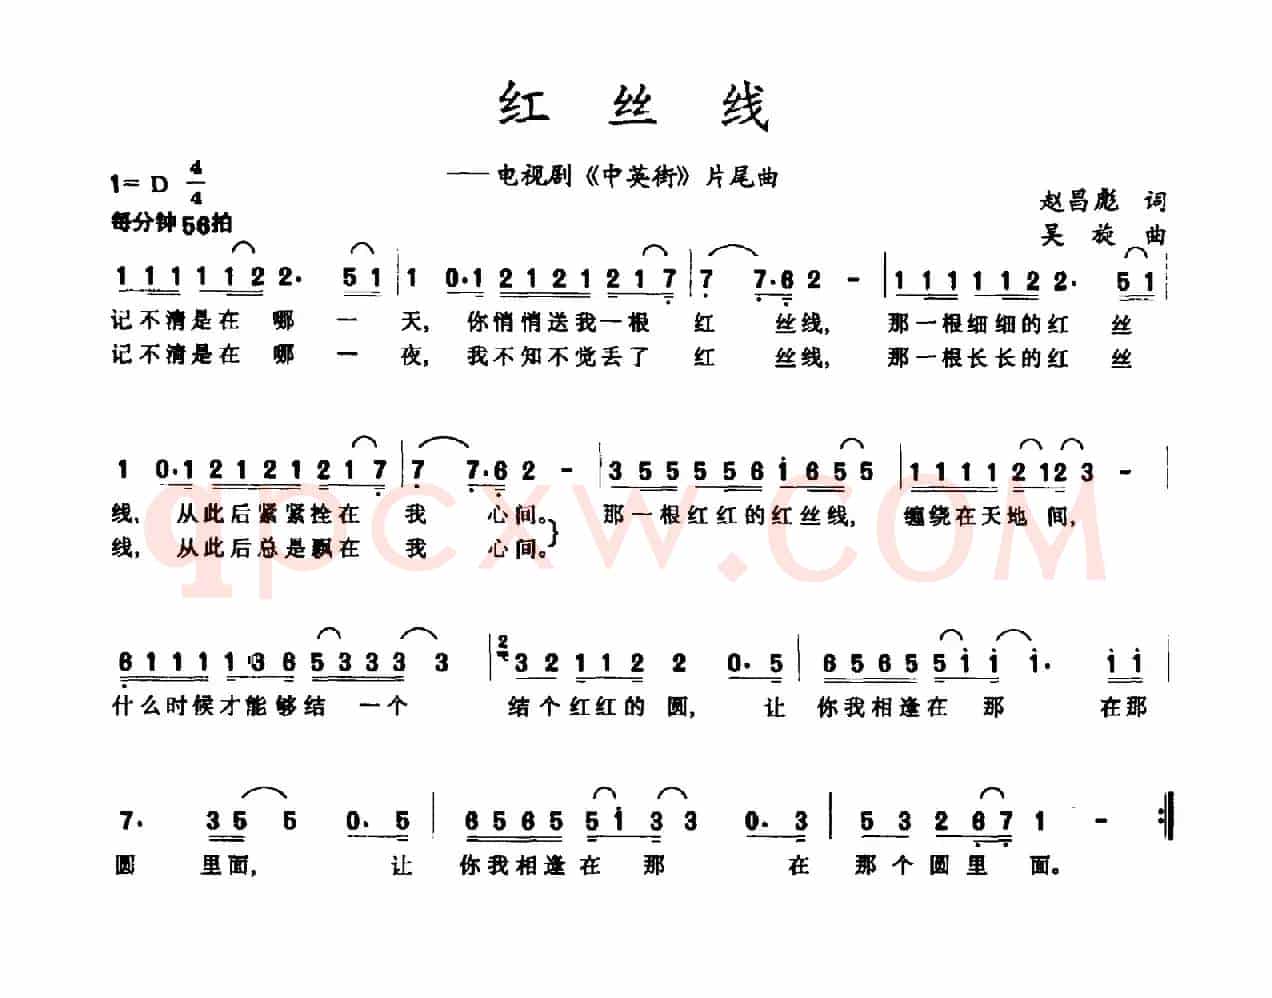 红丝线
1=D 4/4
——电视剧《中英街》片尾曲
每分钟56拍
赵昌彪 词
吴旋 曲
1 1 1 1 1 1 2 2· 5 1 | 1 0·1 2 1 2 1 2 1 7 | 7 7·6 2 - | 1 1 1 1 1 1 2 2· 5 1 |
记不清是在哪一天,你悄悄送我一根红丝线,那一根细细的红丝
记不清是在哪一夜,我不知不觉丢了红丝线,那一根长长的红丝
1 0·1 2 1 2 1 2 1 7 | 7 7·6 2 - | 3 5 5 5 5 6 i 6 5 5 | 1 1 1 1 2 1 2 3 - |
线,从此后紧紧拴在我心间。那一根红红的红丝线,缠绕在天地间,
线,从此后总是飘在我心间。}
qpcxw.COM
6 1 1 1 1 3 6 5 3 3 3 3 | 2 3 2 1 1 2 2 0·5 | 6 5 6 5 5 i i i· i i |
什么时候才能够结一个结个红红的圆,让你我相逢在那在那
7· 3 5 5 0·5 | 6 5 6 5 5 i 3 3 0·3 | 5 3 2 6 7 1 - :‖
圆里面,让你我相逢在那在那个圆里面。